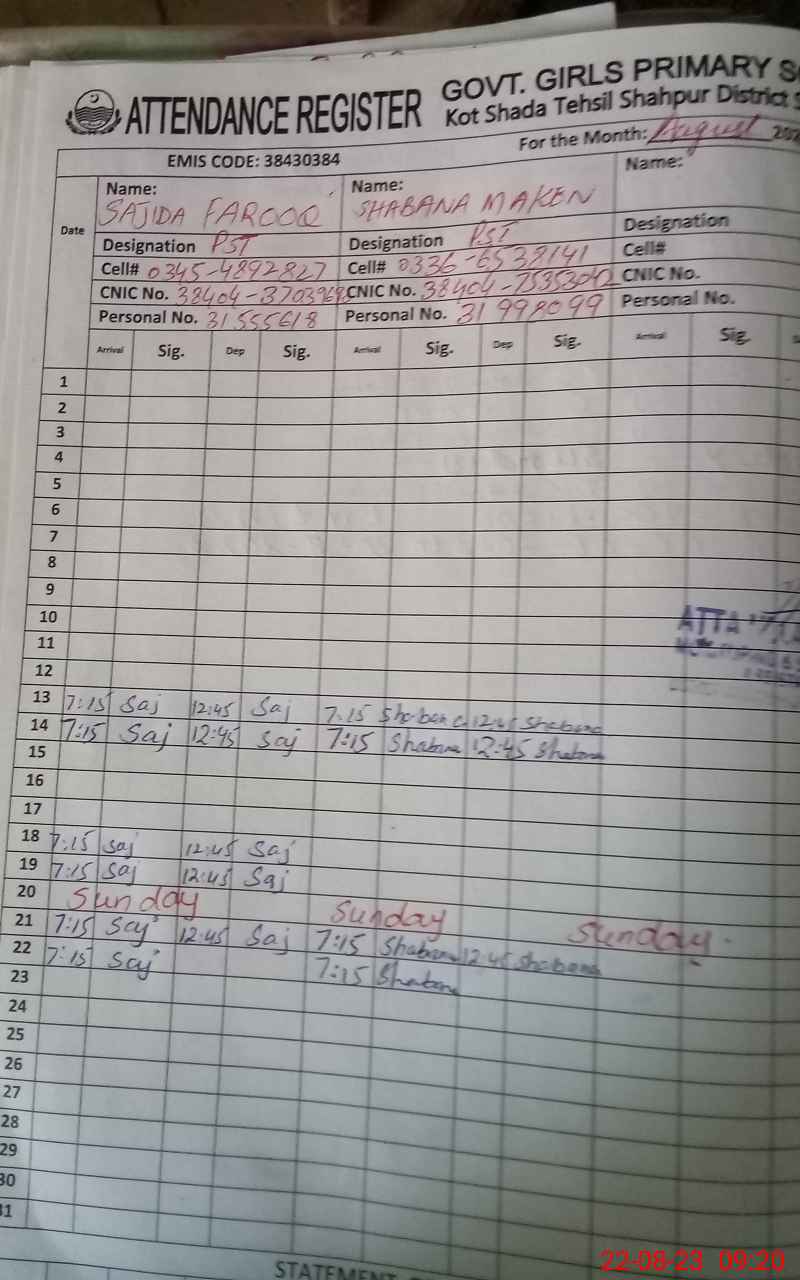 ATTENDANCE REGISTER
GOVT. GIRLS PRIMARY
Kot Shada Tehsil Shahpur District
For the Month: August 202
EMIS CODE: 38430384
Date
Name: Name: Name:
SAJIDA FAROOQ SHABANA MAKEN
Designation PST Designation PST Designation
Cell# 0345-4892827 Cell# 0336-6538141 Cell#
CNIC No. 38404- CNIC No. 38404- CNIC No.
Personal No. 31555618 Personal No. 31998099 Personal No.
Arrival Sig. Dep Sig. Arrival Sig. Dep Sig. Arrival Sig.
1
2
3
4
5
6
7
8
9
10 ATTA
11
12
13 7:15 Saj 12:45 Saj 7:15 Shabana 12:45 Shabana
14 7:15 Saj 12:45 Saj 7:15 Shabana 12:45 Shabana
15
16
17
18 7:15 Saj 12:45 Saj
19 7:15 Saj 12:45 Saj
20 Sunday Sunday Sunday
21 7:15 Saj 12:45 Saj 7:15 Shabana 12:45 Shabana
22 7:15 Saj 7:15 Shabana
23
24
25
26
27
28
29
30
31
STATEMENT
22-08-23 09:20